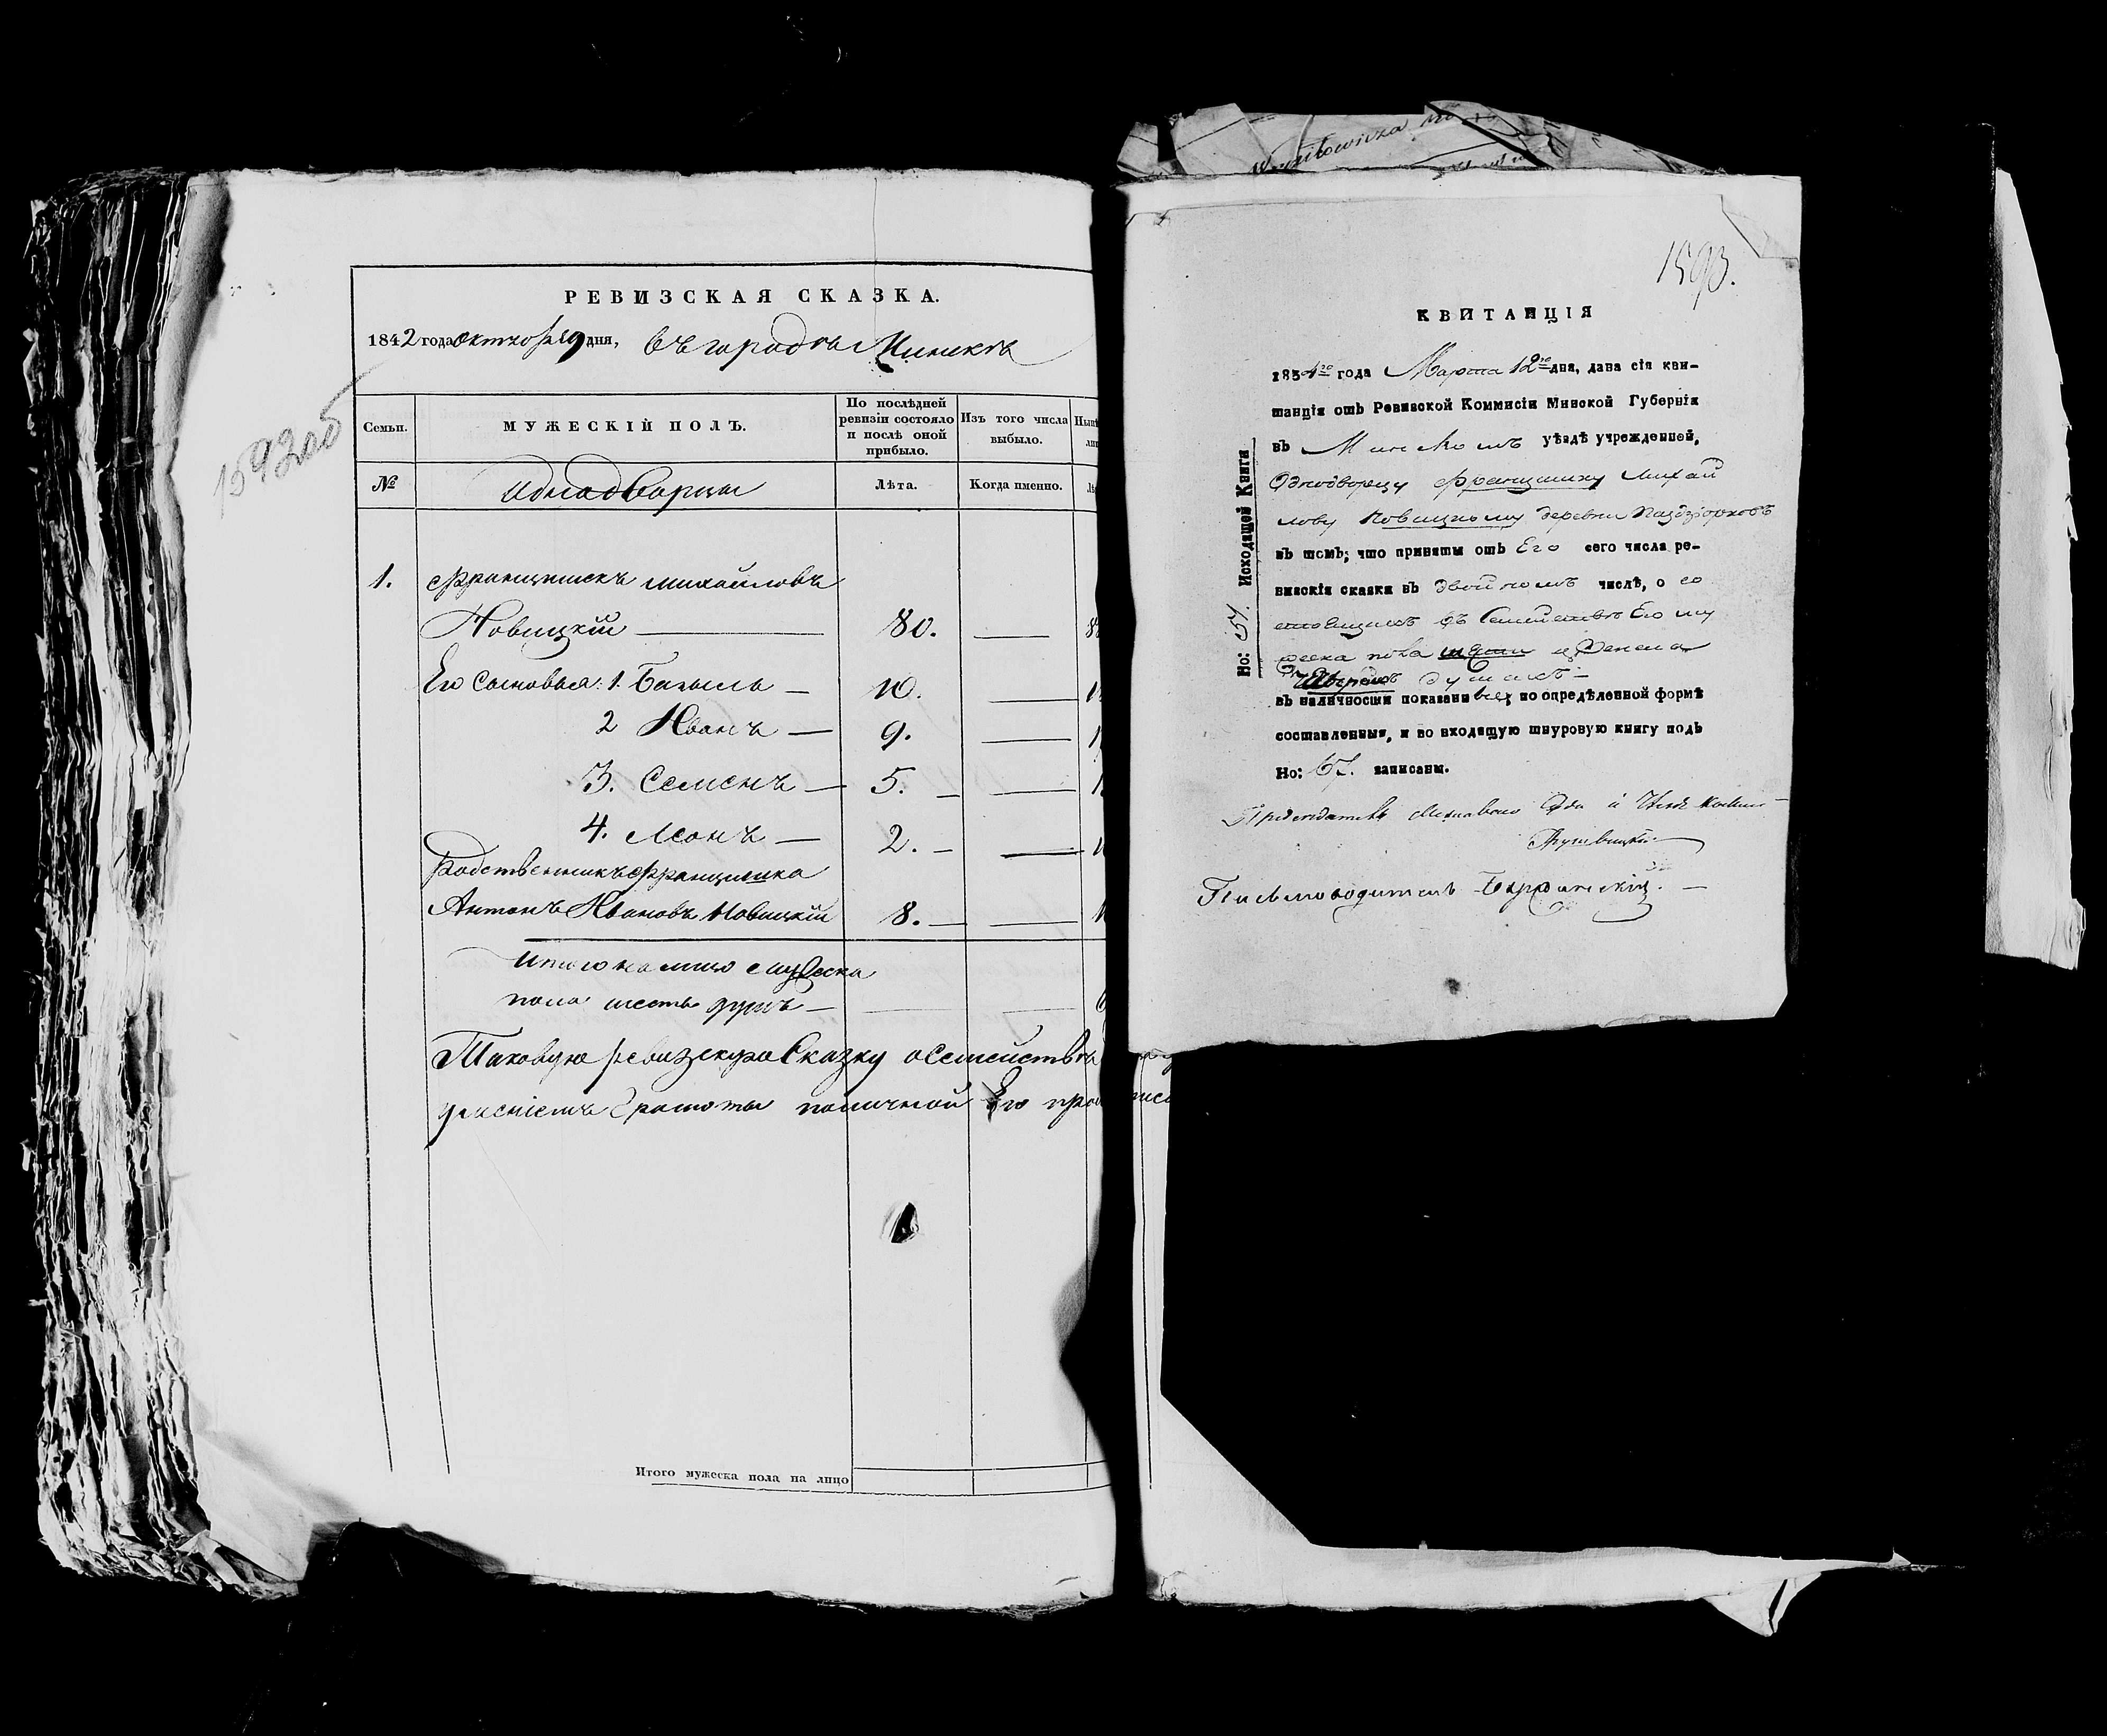 РЕВИЗСКАЯ СКАЗКА.
1842 года октября 9 дня, въ городѣ Минскѣ
1592 об
Семьи. МУЖЕСКІЙ ПОЛЪ. По послѣдней ревизіи состояло и послѣ оной прибыло. Изъ того числа выбыло.
№ Однодворцы Лѣта. Когда именно.
1. Францишекъ Михайловъ
Новицкій — 80. —
Его Сыновья: 1. Базыль — 10. —
2 Иванъ — 9. —
3. Семенъ — 5. — —
4. Леонъ — 2. — —
Родственникъ Францишка
Антонъ Ивановъ Новицкій 8. — —
Итого на лицо мужеска
пола шесть душъ —
Таковую ревизскую Сказку о Семействѣ
грамоты Его
Итого мужеска пола на лицо
Wo
1593.
КВИТАНЦІЯ
1834го года Марта 12го дня, дана сія кви-
танція отъ Ревизской Коммисіи Минской Губерніи
въ Минскомъ уѣздѣ учрежденной,
Однодворцу Францишку Михай
лову Новицкому деревни
въ томъ; что приняты отъ Его сего числа ре-
визскія сказки въ двойномъ числѣ, о со
стоящихъ въ Семействѣ Его му
жеска пола
душахъ
въ наличности показани все, по опредѣленной формѣ
составленныя, и во входящую шнуровую книгу подъ
Но: 67. записаны.
Но: 51. Исходящей Книги
Письмоводитель